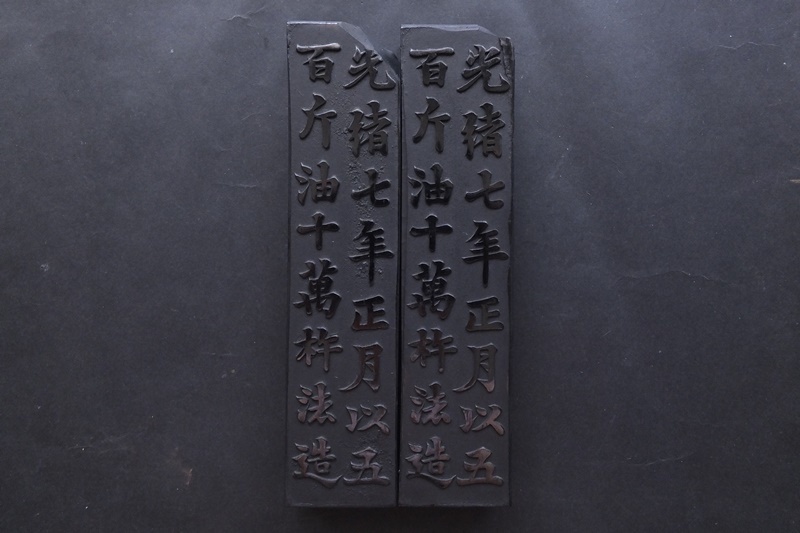 光緒七年正月以五
百斤油十萬杵法造
光緒七年正月以五
百斤油十萬杵法造